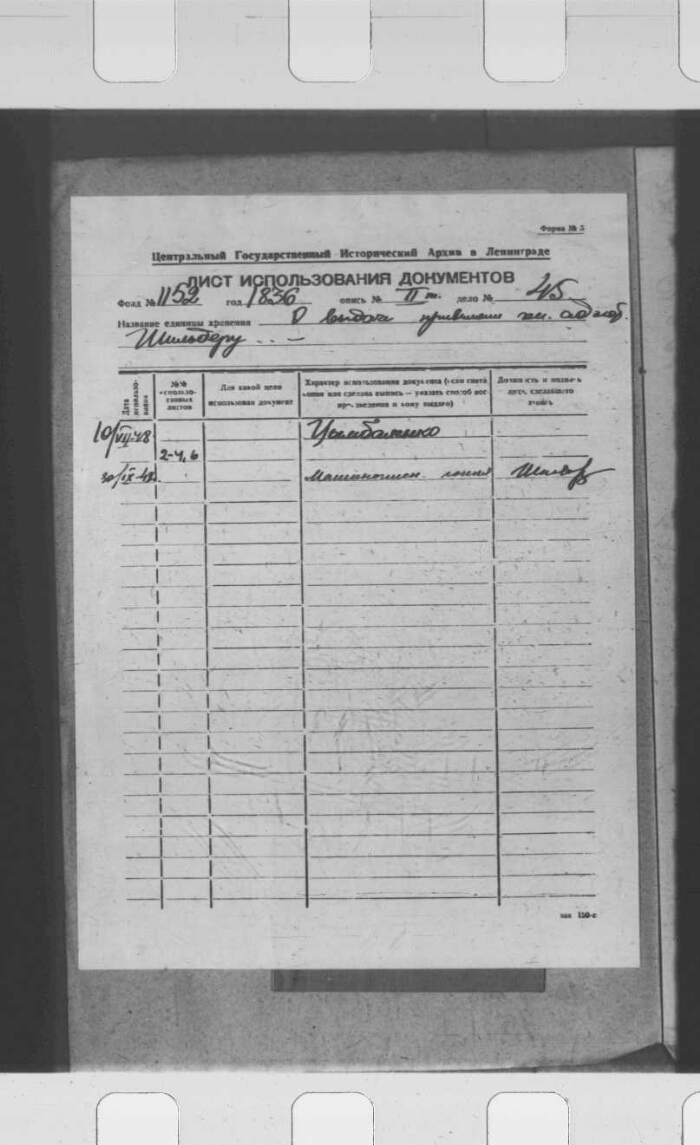 Форма № 5
Центральный Государственный Исторический Архив в Ленинграде
ЛИСТ ИСПОЛЬЗОВАНИЯ ДОКУМЕНТОВ
Фонд № 1152 год 1836 опись № II т. дело № 45
Название единицы хранения О выдаче привилегии
Шильдеру
Дата использования
№№ использованных листов
Для какой цели использован документ
Характер использования документа (если снята копия или сделана выпись — указать способ воспроизведения и кому выдано)
Должность и подпись лица, сделавшего запись
10/VII-48 Цымбаленко
2-4, 6
30/IX-48 Машинописн. копия
зак 150-с